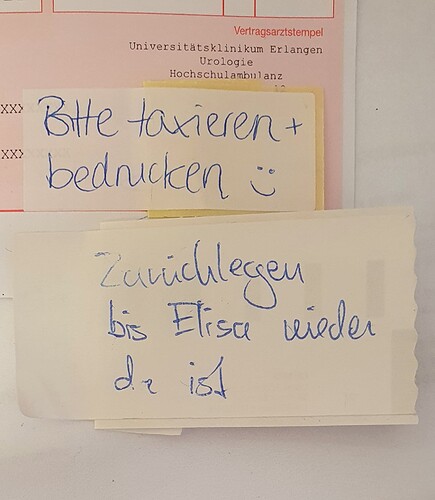 Vertragsarztstempel
Universitätsklinikum Erlangen
Urologie
Hochschulambulanz
XXX
XXX
Bitte taxieren +
bedrucken :)
Zurücklegen
bis Elisa wieder
da ist